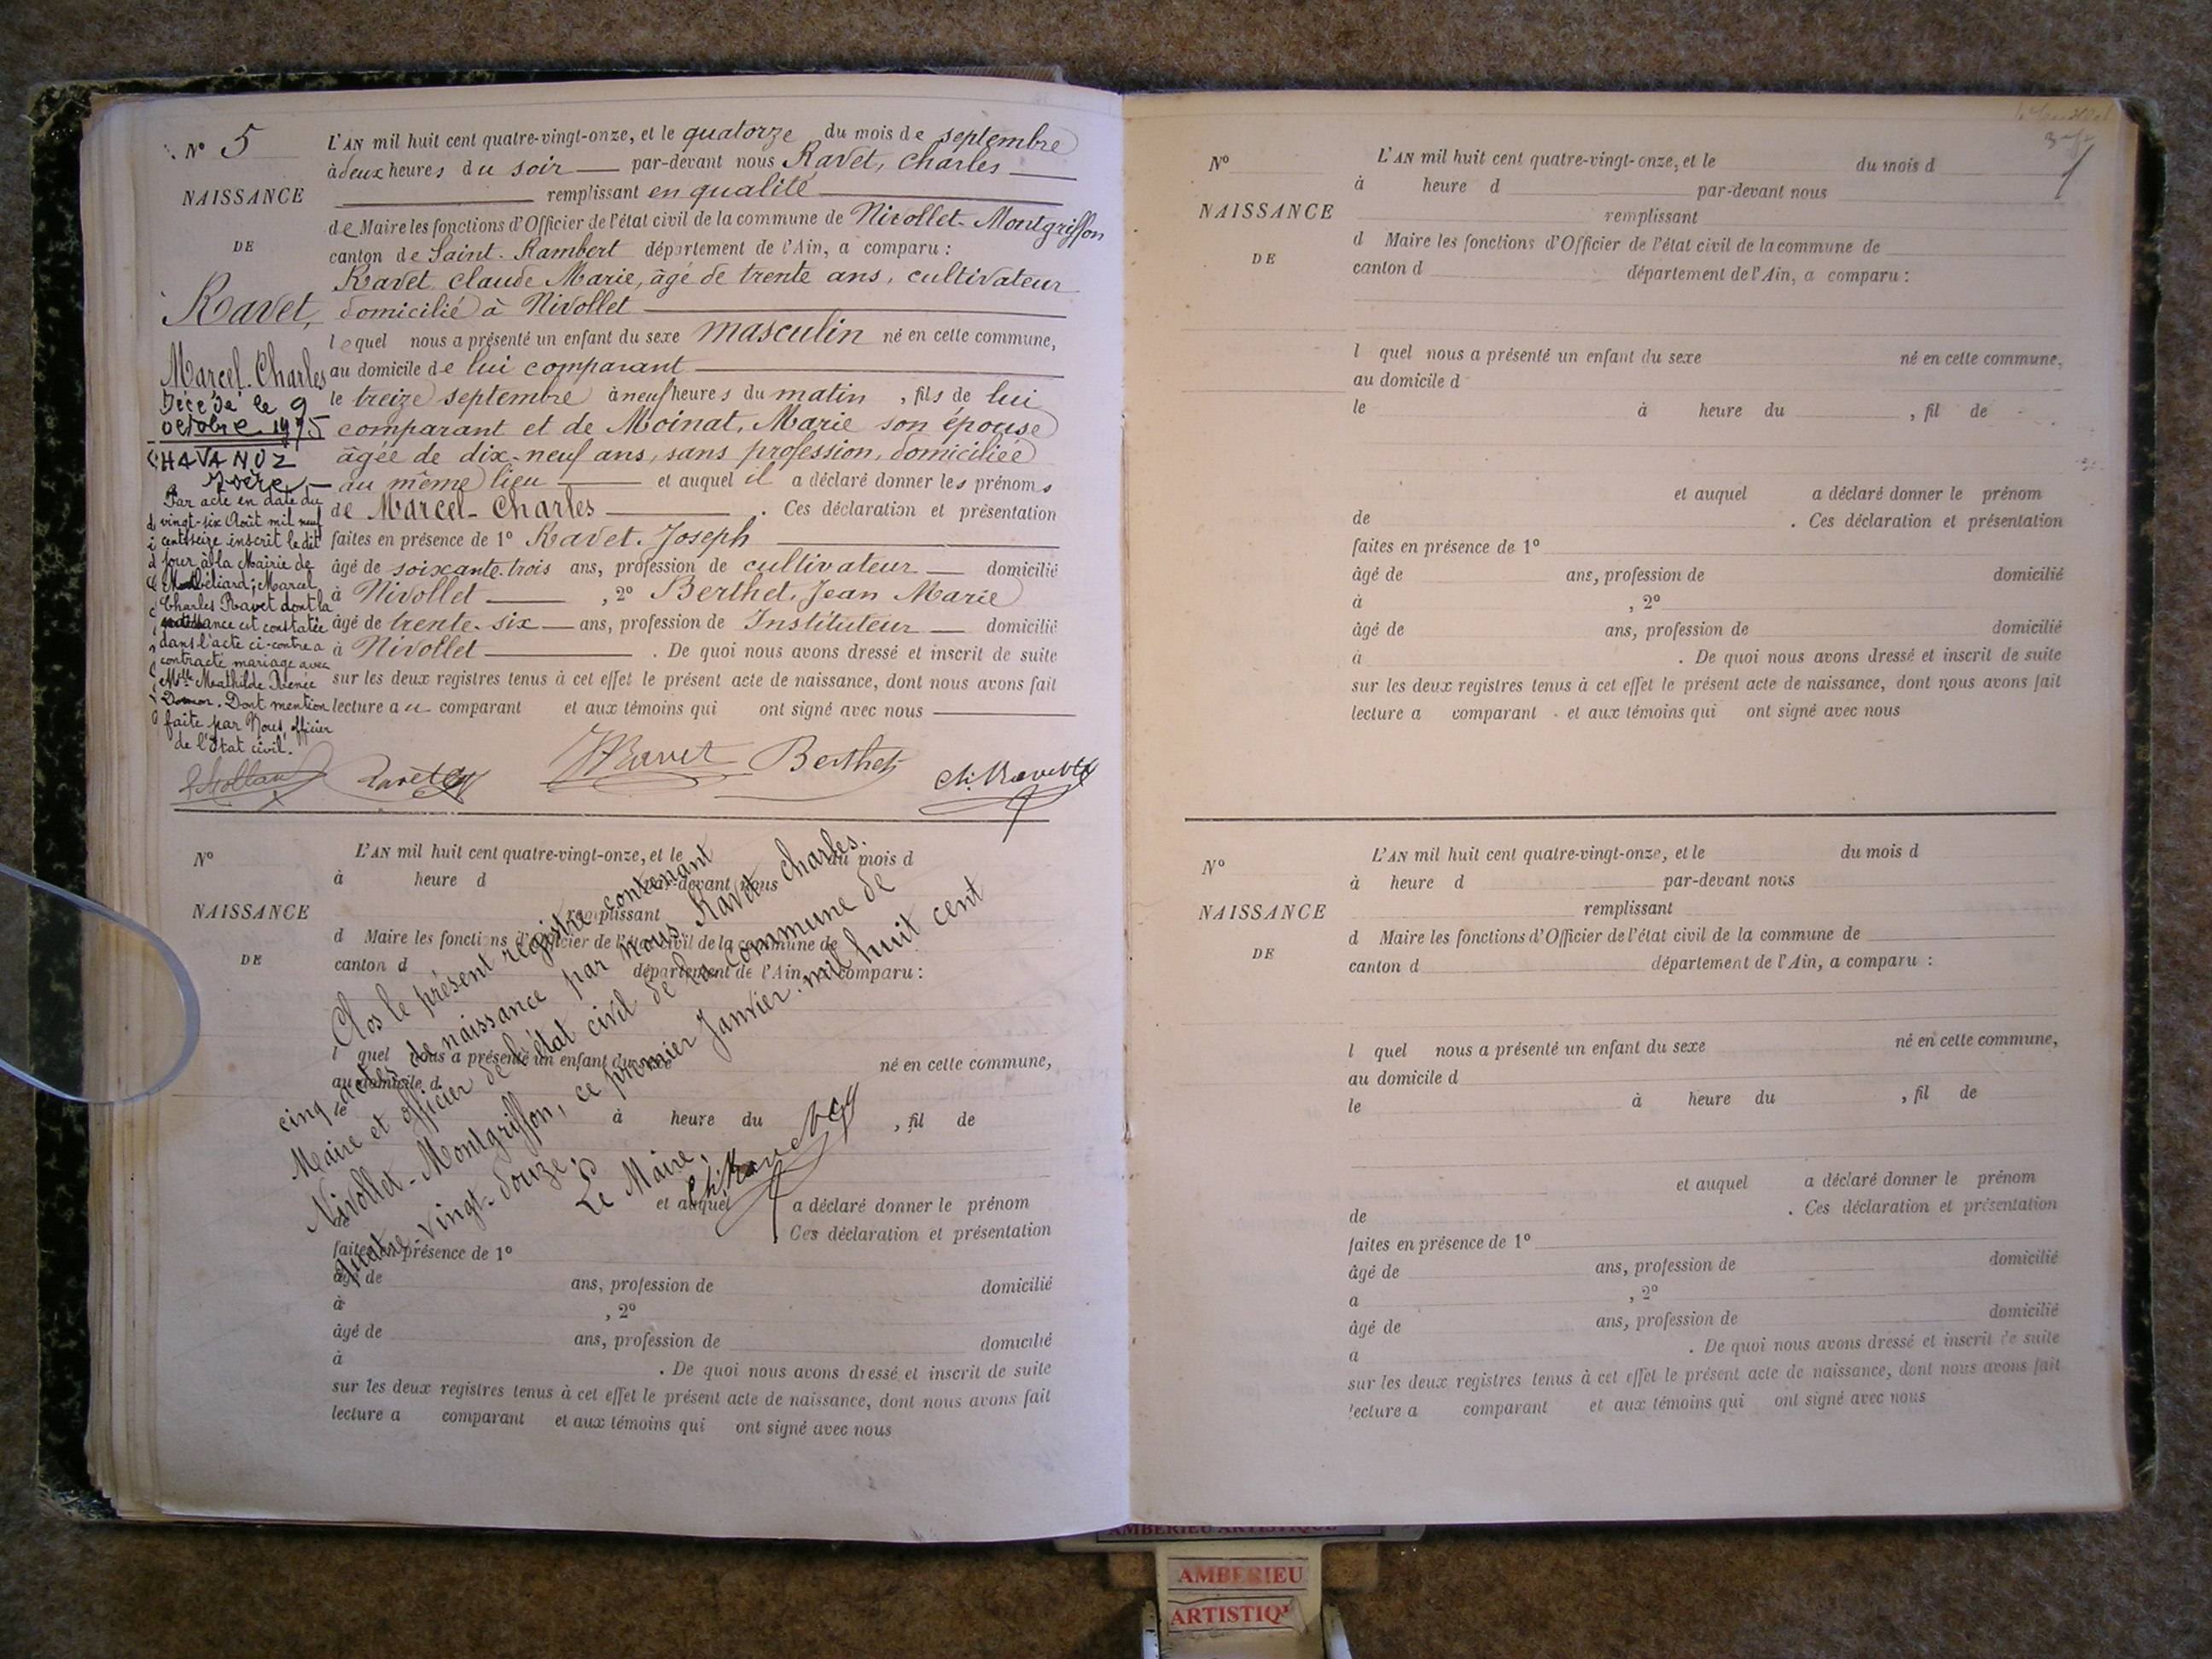 N° 5
NAISSANCE
DE
Ravet,
Marcel-Charles
Décédé le 9
octobre 1975
CHAVANOZ
Isère
Par acte en date du
vingt-six Août mil neuf
cent seize inscrit le dit
jour à la Mairie de
Montbéliard, Marcel
Charles Ravet dont la
naissance est constatée
dans l'acte ci-contre a
contracté mariage avec
Mlle Mathilde Renée
Domon. Dont mention
faite par Nous, officier
de l'état civil.
L'AN mil huit cent quatre-vingt-onze, et le quatorze du mois de septembre
à deux heures du soir par-devant nous Ravet, Charles
remplissant en qualité
de Maire les fonctions d'Officier de l'état civil de la commune de Nivollet-Montgriffon
canton de Saint-Rambert département de l'Ain, a comparu :
Ravet, Claude Marie, âgé de trente ans, cultivateur
domicilié à Nivollet
lequel nous a présenté un enfant du sexe masculin né en cette commune,
au domicile de lui comparant
le treize septembre à neuf heures du matin , fils de lui
comparant et de Moinat, Marie son épouse
âgée de dix-neuf ans, sans profession, domiciliée
au même lieu et auquel il a déclaré donner les prénoms
de Marcel-Charles . Ces déclaration et présentation
faites en présence de 1° Ravet. Joseph
âgé de soixante-trois ans, profession de cultivateur domicilié
à Nivollet , 2° Berthet, Jean Marie
âgé de trente-six ans, profession de Instituteur domicilié
à Nivollet . De quoi nous avons dressé et inscrit de suite
sur les deux registres tenus à cet effet le présent acte de naissance, dont nous avons fait
lecture au comparant et aux témoins qui ont signé avec nous
Ravet Berthet Ch. Ravet
N°
NAISSANCE
DE
L'AN mil huit cent quatre-vingt-onze, et le du mois d
à heure d par-devant nous
remplissant
d Maire les fonctions d'Officier de l'état civil de la commune de
canton d département de l'Ain, a comparu :
l quel nous a présenté un enfant du sexe né en cette commune,
au domicile d
le à heure du , fil de
et auquel a déclaré donner le prénom
de Ces déclaration et présentation
faites en présence de 1°
âgé de ans, profession de domicilié
à , 2°
âgé de ans, profession de domicilié
à . De quoi nous avons dressé et inscrit de suite
sur les deux registres tenus à cet effet le présent acte de naissance, dont nous avons fait
lecture a comparant et aux témoins qui ont signé avec nous
Clos le présent registre contenant
cinq actes de naissance par nous, Ravet Charles.
Maire et officier de l'état civil de la commune de
Nivollet-Montgriffon, ce premier Janvier mil huit cent
quatre-vingt-douze.
Le Maire,
Ch. Ravet
N°
NAISSANCE
DE
L'AN mil huit cent quatre-vingt-onze, et le du mois d
à heure d par-devant nous
remplissant
d Maire les fonctions d'Officier de l'état civil de la commune de
canton d département de l'Ain, a comparu :
l quel nous a présenté un enfant du sexe né en cette commune,
au domicile d
le à heure du , fil de
et auquel a déclaré donner le prénom
de . Ces déclaration et présentation
faites en présence de 1°
âgé de ans, profession de domicilié
à , 2°
âgé de ans, profession de domicilié
à . De quoi nous avons dressé et inscrit de suite
sur les deux registres tenus à cet effet le présent acte de naissance, dont nous avons fait
lecture a comparant et aux témoins qui ont signé avec nous
N°
NAISSANCE
DE
L'AN mil huit cent quatre-vingt-onze, et le du mois d
à heure d par-devant nous
remplissant
d Maire les fonctions d'Officier de l'état civil de la commune de
canton d département de l'Ain, a comparu :
l quel nous a présenté un enfant du sexe né en cette commune,
au domicile d
le à heure du , fil de
et auquel a déclaré donner le prénom
de . Ces déclaration et présentation
faites en présence de 1°
âgé de ans, profession de domicilié
a , 2°
âgé de ans, profession de domicilié
a . De quoi nous avons dressé et inscrit de suite
sur les deux registres tenus à cet effet le présent acte de naissance, dont nous avons fait
lecture a comparant et aux témoins qui ont signé avec nous
AMBERIEU ARTISTIQUE
AMBERIEU
ARTISTIQU